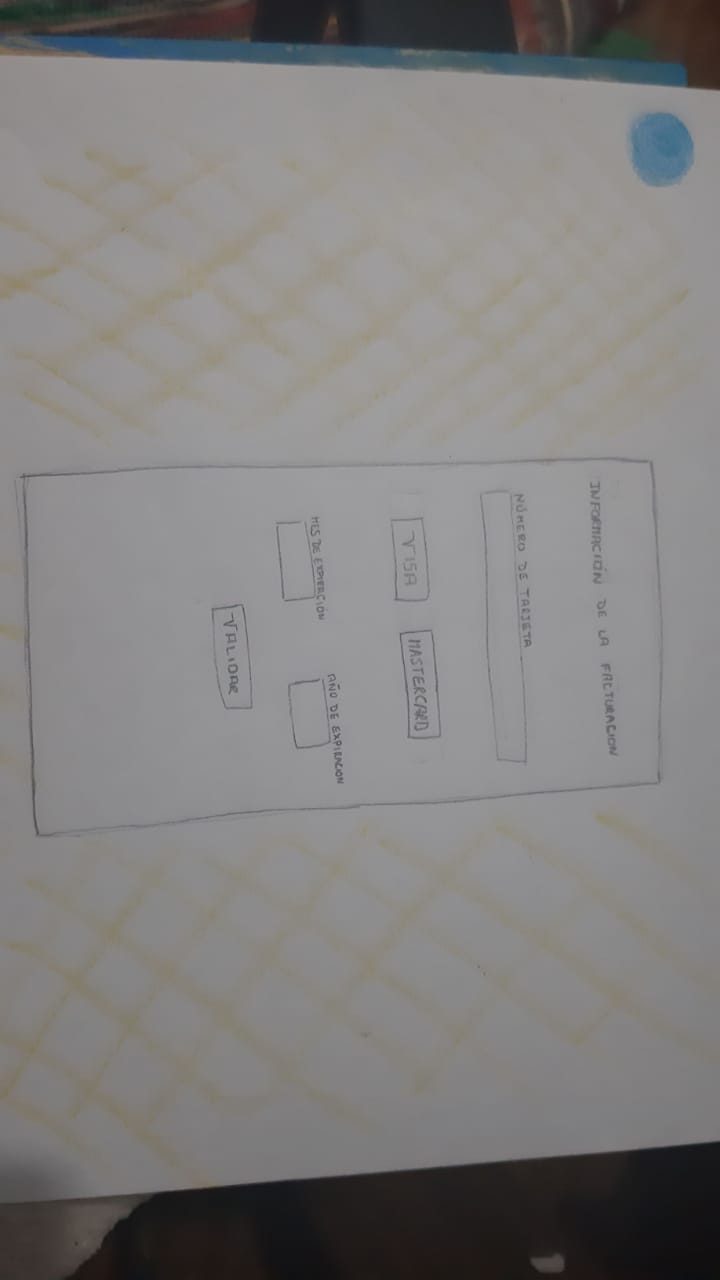 INFORMACIÓN DE LA FACTURACION
NÚMERO DE TARJETA
VISA MASTERCARD
MES DE EXPIRACIÓN AÑO DE EXPIRACION
VALIDAR